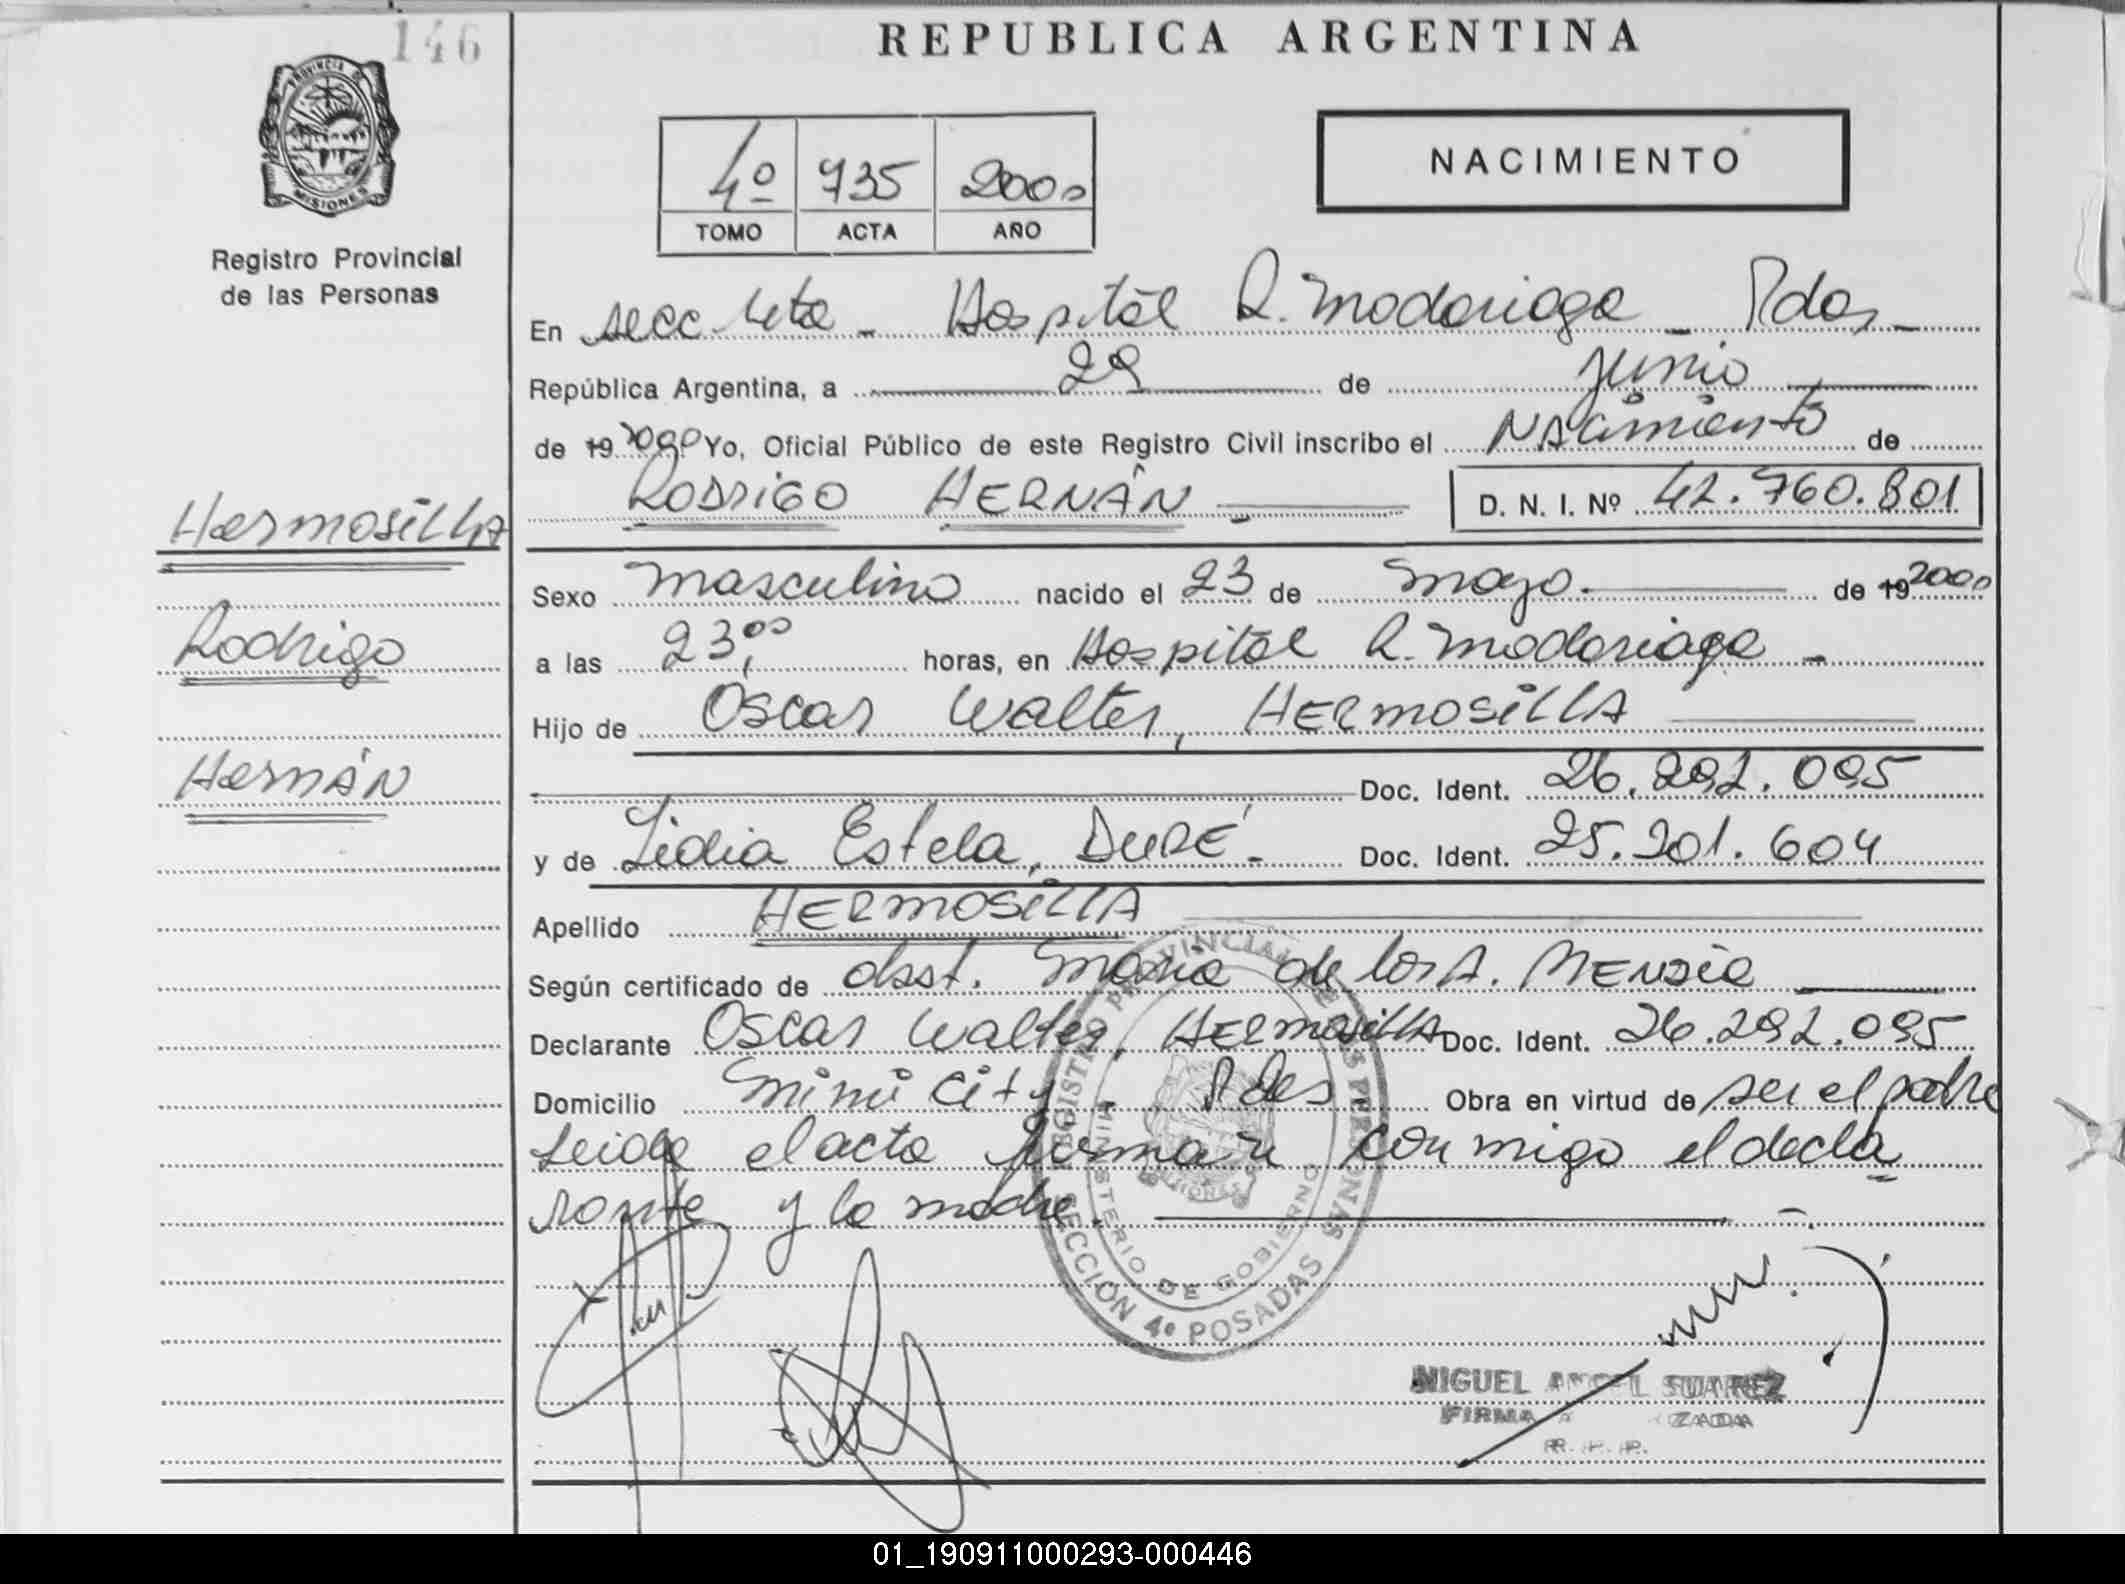 146
REPUBLICA ARGENTINA
PROVINCIA DE
MISIONES
Registro Provincial
de las Personas
4º 735 2000
TOMO ACTA AÑO
NACIMIENTO
En secc 4ta - Hospital R. Madariaga - Pdas -
República Argentina, a 29 de Junio
de 19 2000 Yo, Oficial Público de este Registro Civil inscribo el Nacimiento de
RODRIGO HERNÁN D. N. I. Nº 42.760.801
Hermosilla
Rodrigo
Hernán
Sexo masculino nacido el 23 de mayo. de 19 2000
a las 23,00 horas, en Hospital R. Madariaga -
Hijo de Oscar Walter, HERMOSILLA
Doc. Ident. 26.292.095
y de Lidia Estela, DURÉ. Doc. Ident. 25.201.604
Apellido HERMOSILLA
Según certificado de obst. Maria de los A. MENDIE
Declarante Oscar Walter, HERMOSILLA Doc. Ident. 26.292.095
Domicilio Mini City - Pdas Obra en virtud de ser el padre
Leida el acta firman conmigo el decla
rante y la madre.
REGISTRO PROVINCIAL DE LAS PERSONAS
MINISTERIO DE GOBIERNO
MISIONES
SECCION 4º POSADAS
MIGUEL ANGEL SUAREZ
FIRMA
R. P. P.
01_190911000293-000446